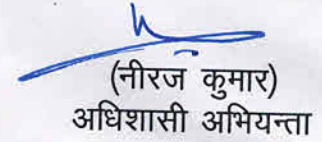 (नीरज कुमार)
अधिशासी अभियन्ता